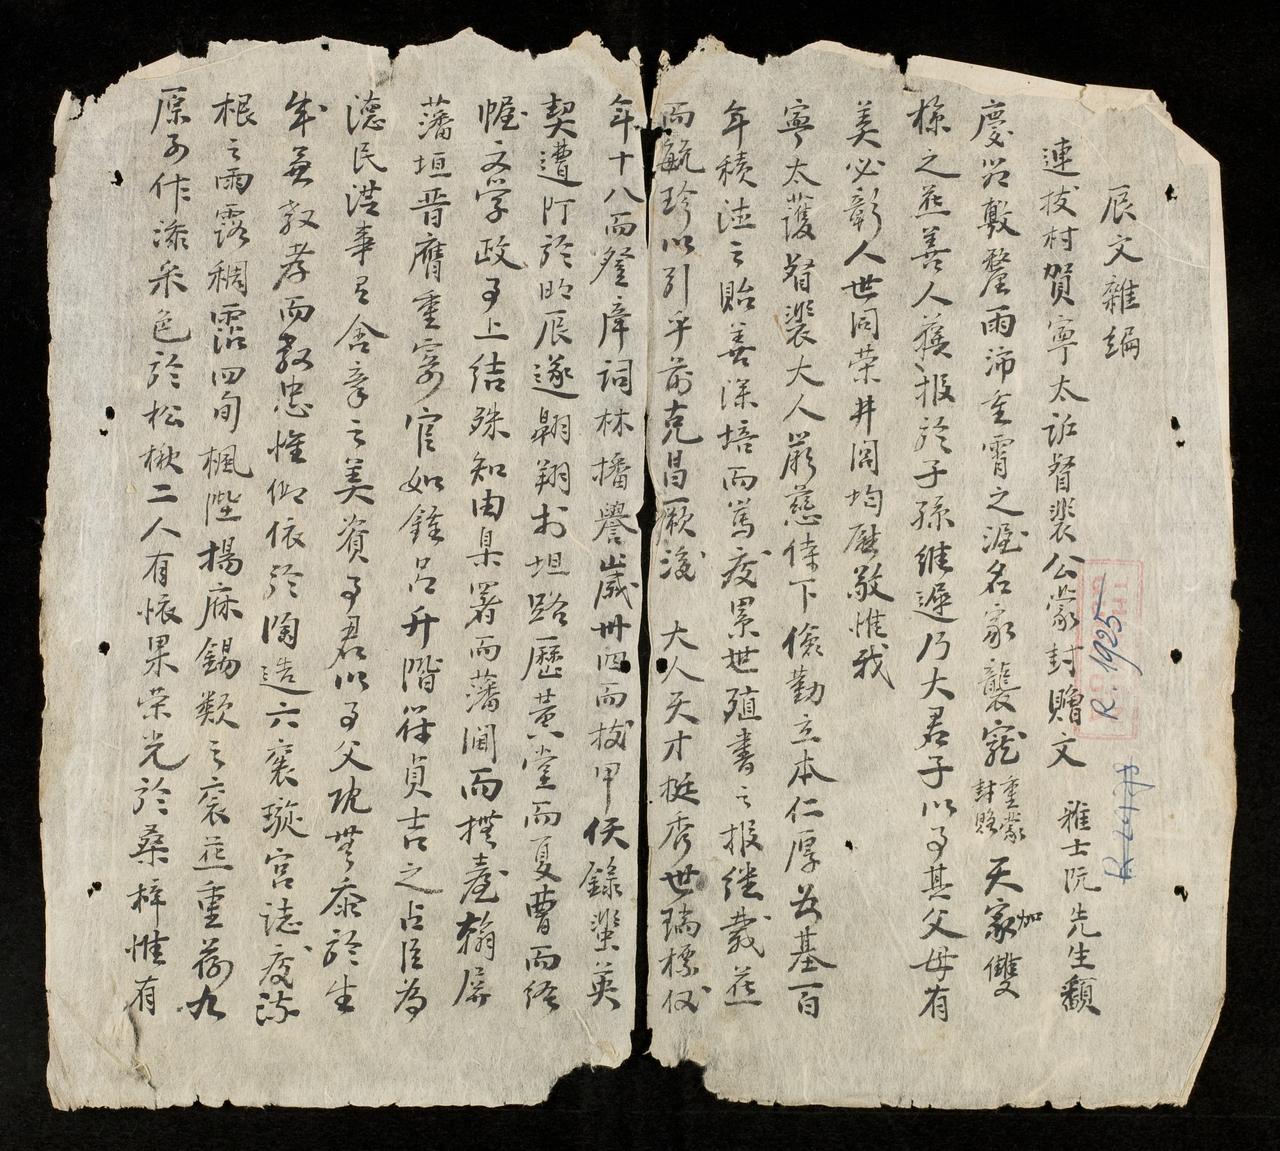 辰文雜編
連拔村賀寧太祘督裴公蒙封贈文 雅士阮先生顙
慶畧敷釐雨沛重霄之渥名家襲寵重蒙封贈天家加雙
樣之花善人獲報於子孫継遲乃大君子以事其父母有
美必彰人世同荣井閭均慰敬惟我
寧太護督裴大人嚴慈侍下儉勤立本仁厚為基百
年積德之貽善深培而篤慶累世殖書之报继裁花
而毓珍以引乎前克昌厥後 大人天才挺秀世瑞標仪
年十八而登庠詞林播譽歲卅四而拔甲侠錄蜚英
契遭际於明辰遂翱翔於坦路歷黃堂而夏曹而经
幄文学政事上结殊知由臬署而藩闉而撫臺翰屏
藩垣晋膺重寄官如鍾呂升階符貞吉之占臣為
德民洪事見含章之美資事君以事父琓無忝於生
成并教孝而教忠惟仰依於陶造六袠璇宮誌慶流
根之雨露稠霑四旬楓陛揚庥錫類之衮花重荷九
原子作添采色於松楸二人有懷果荣光於桑梓惟有
R. 1925